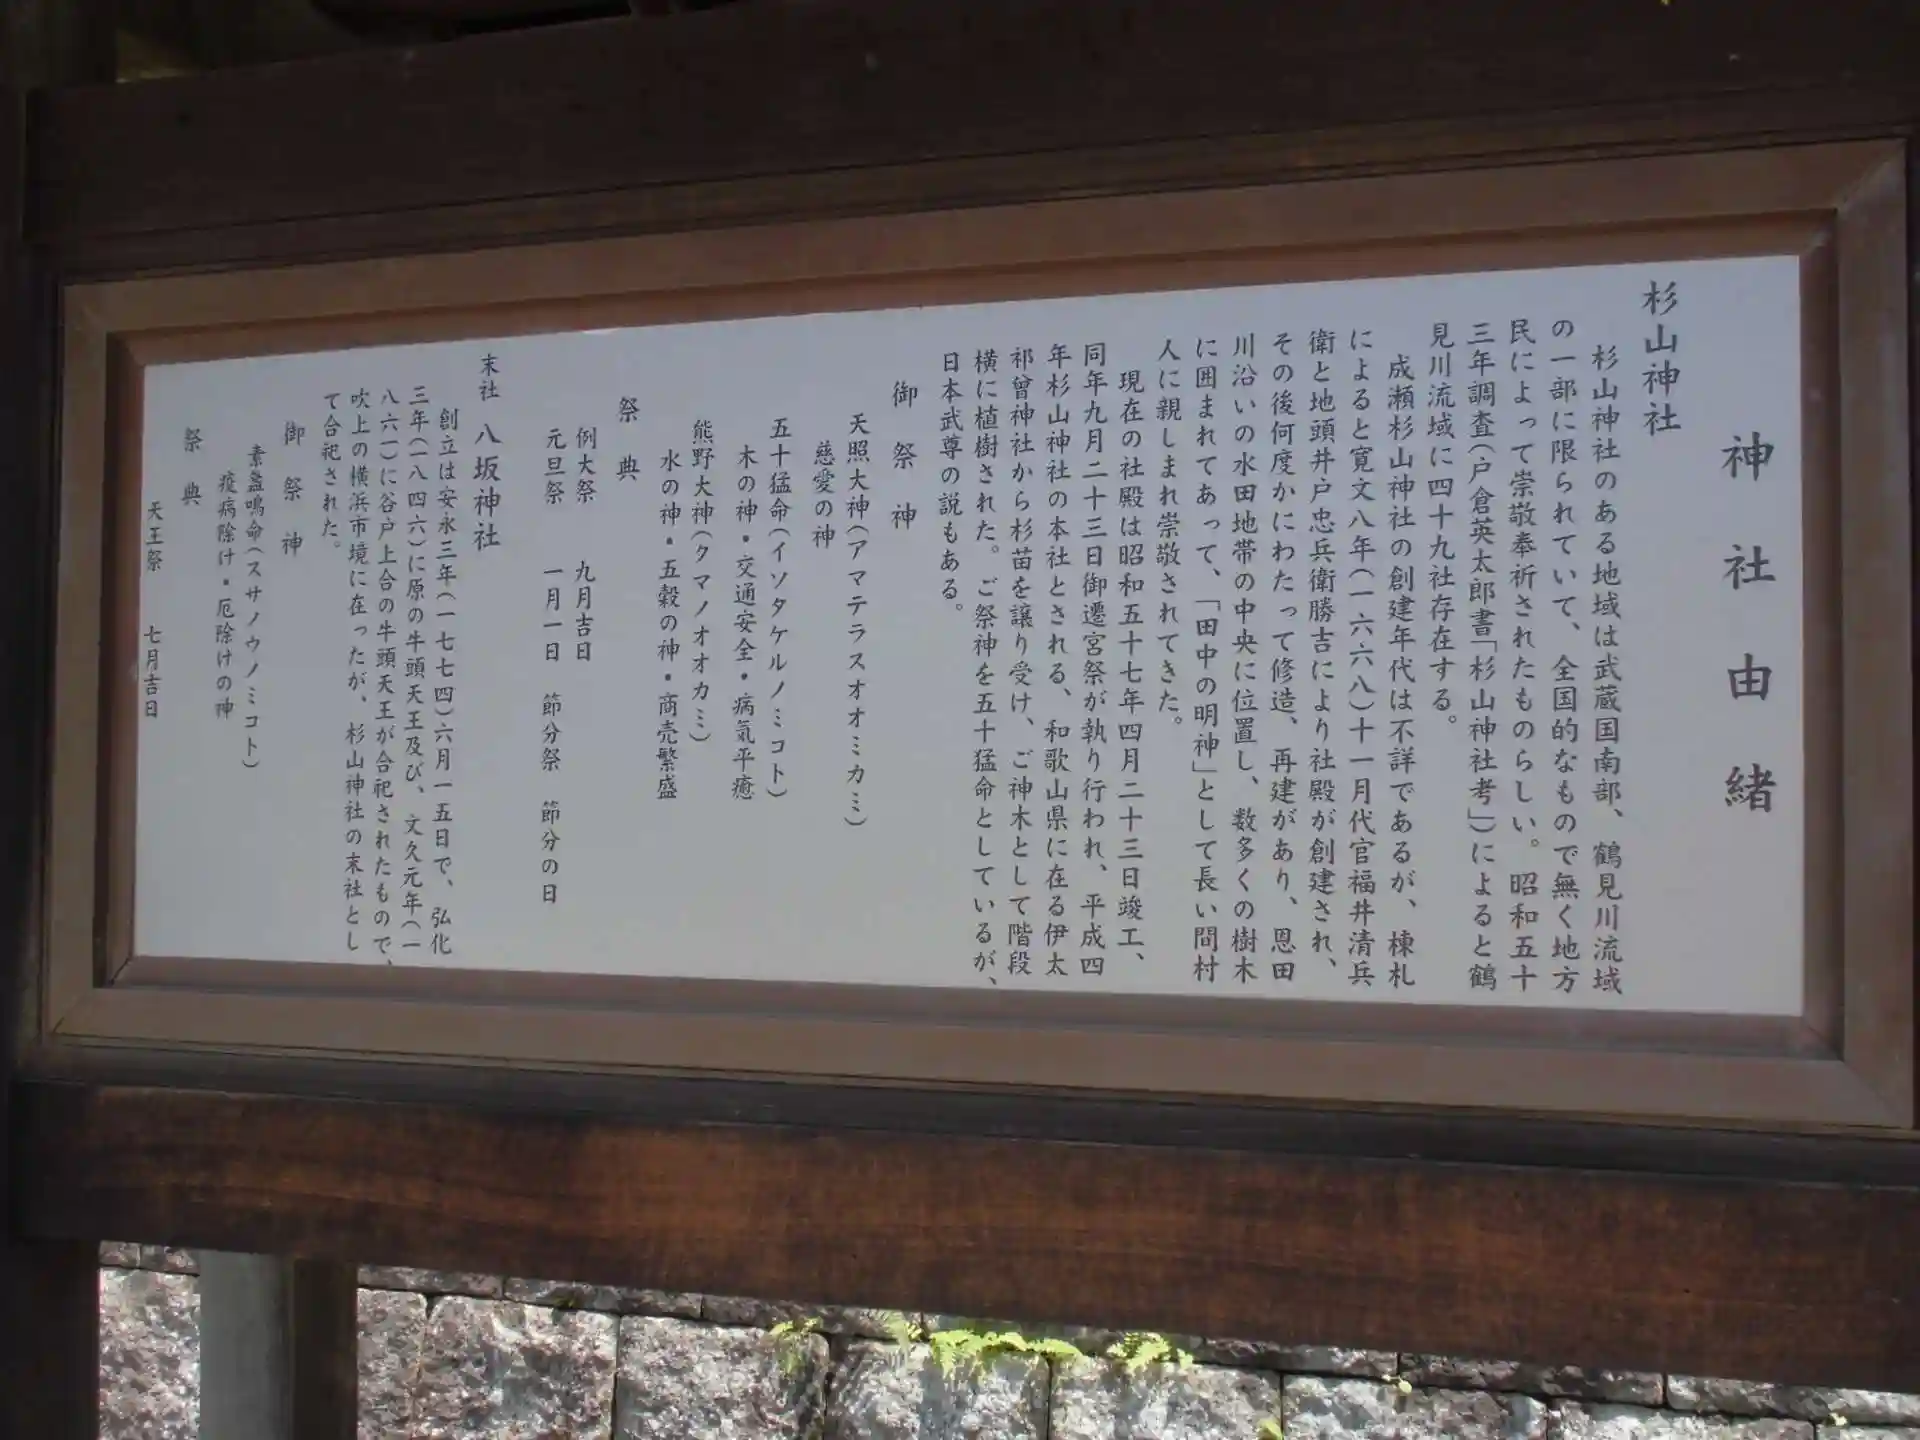 神社由緒
杉山神社
杉山神社のある地域は武蔵国南部、鶴見川流域
の一部に限られていて、全国的なもので無く地方
民によって崇敬奉祈されたものらしい。昭和五十
三年調査(戸倉英太郎書「杉山神社考」)によると鶴
見川流域に四十九社存在する。
成瀬杉山神社の創建年代は不詳であるが、棟札
によると寛文八年(一六六八)十一月代官福井清兵
衛と地頭井戸忠兵衛勝吉により社殿が創建され、
その後何度かにわたって修造、再建があり、恩田
川沿いの水田地帯の中央に位置し、数多くの樹木
に囲まれてあって、「田中の明神」として長い間村
人に親しまれ崇敬されてきた。
現在の社殿は昭和五十七年四月二十三日竣工、
同年九月二十三日御遷宮祭が執り行われ、平成四
年杉山神社の本社とされる、和歌山県に在る伊太
祁曾神社から杉苗を譲り受け、ご神木として階段
横に植樹された。ご祭神を五十猛命としているが、
日本武尊の説もある。
御祭神
天照大神(アマテラスオオミカミ)
慈愛の神
五十猛命(イソタケルノミコト)
木の神・交通安全・病気平癒
熊野大神(クマノオオカミ)
水の神・五穀の神・商売繁盛
祭典
例大祭 九月吉日
元旦祭 一月一日 節分祭 節分の日
末社 八坂神社
創立は安永三年(一七七四)六月一五日で、弘化
三年(一八四六)に原の牛頭天王及び、文久元年(一
八六一)に谷戸上合の牛頭天王が合祀されたもので、
吹上の横浜市境に在ったが、杉山神社の末社とし
て合祀された。
御祭神
素盞鳴命(スサノウノミコト)
疫病除け・厄除けの神
祭典
天王祭 七月吉日